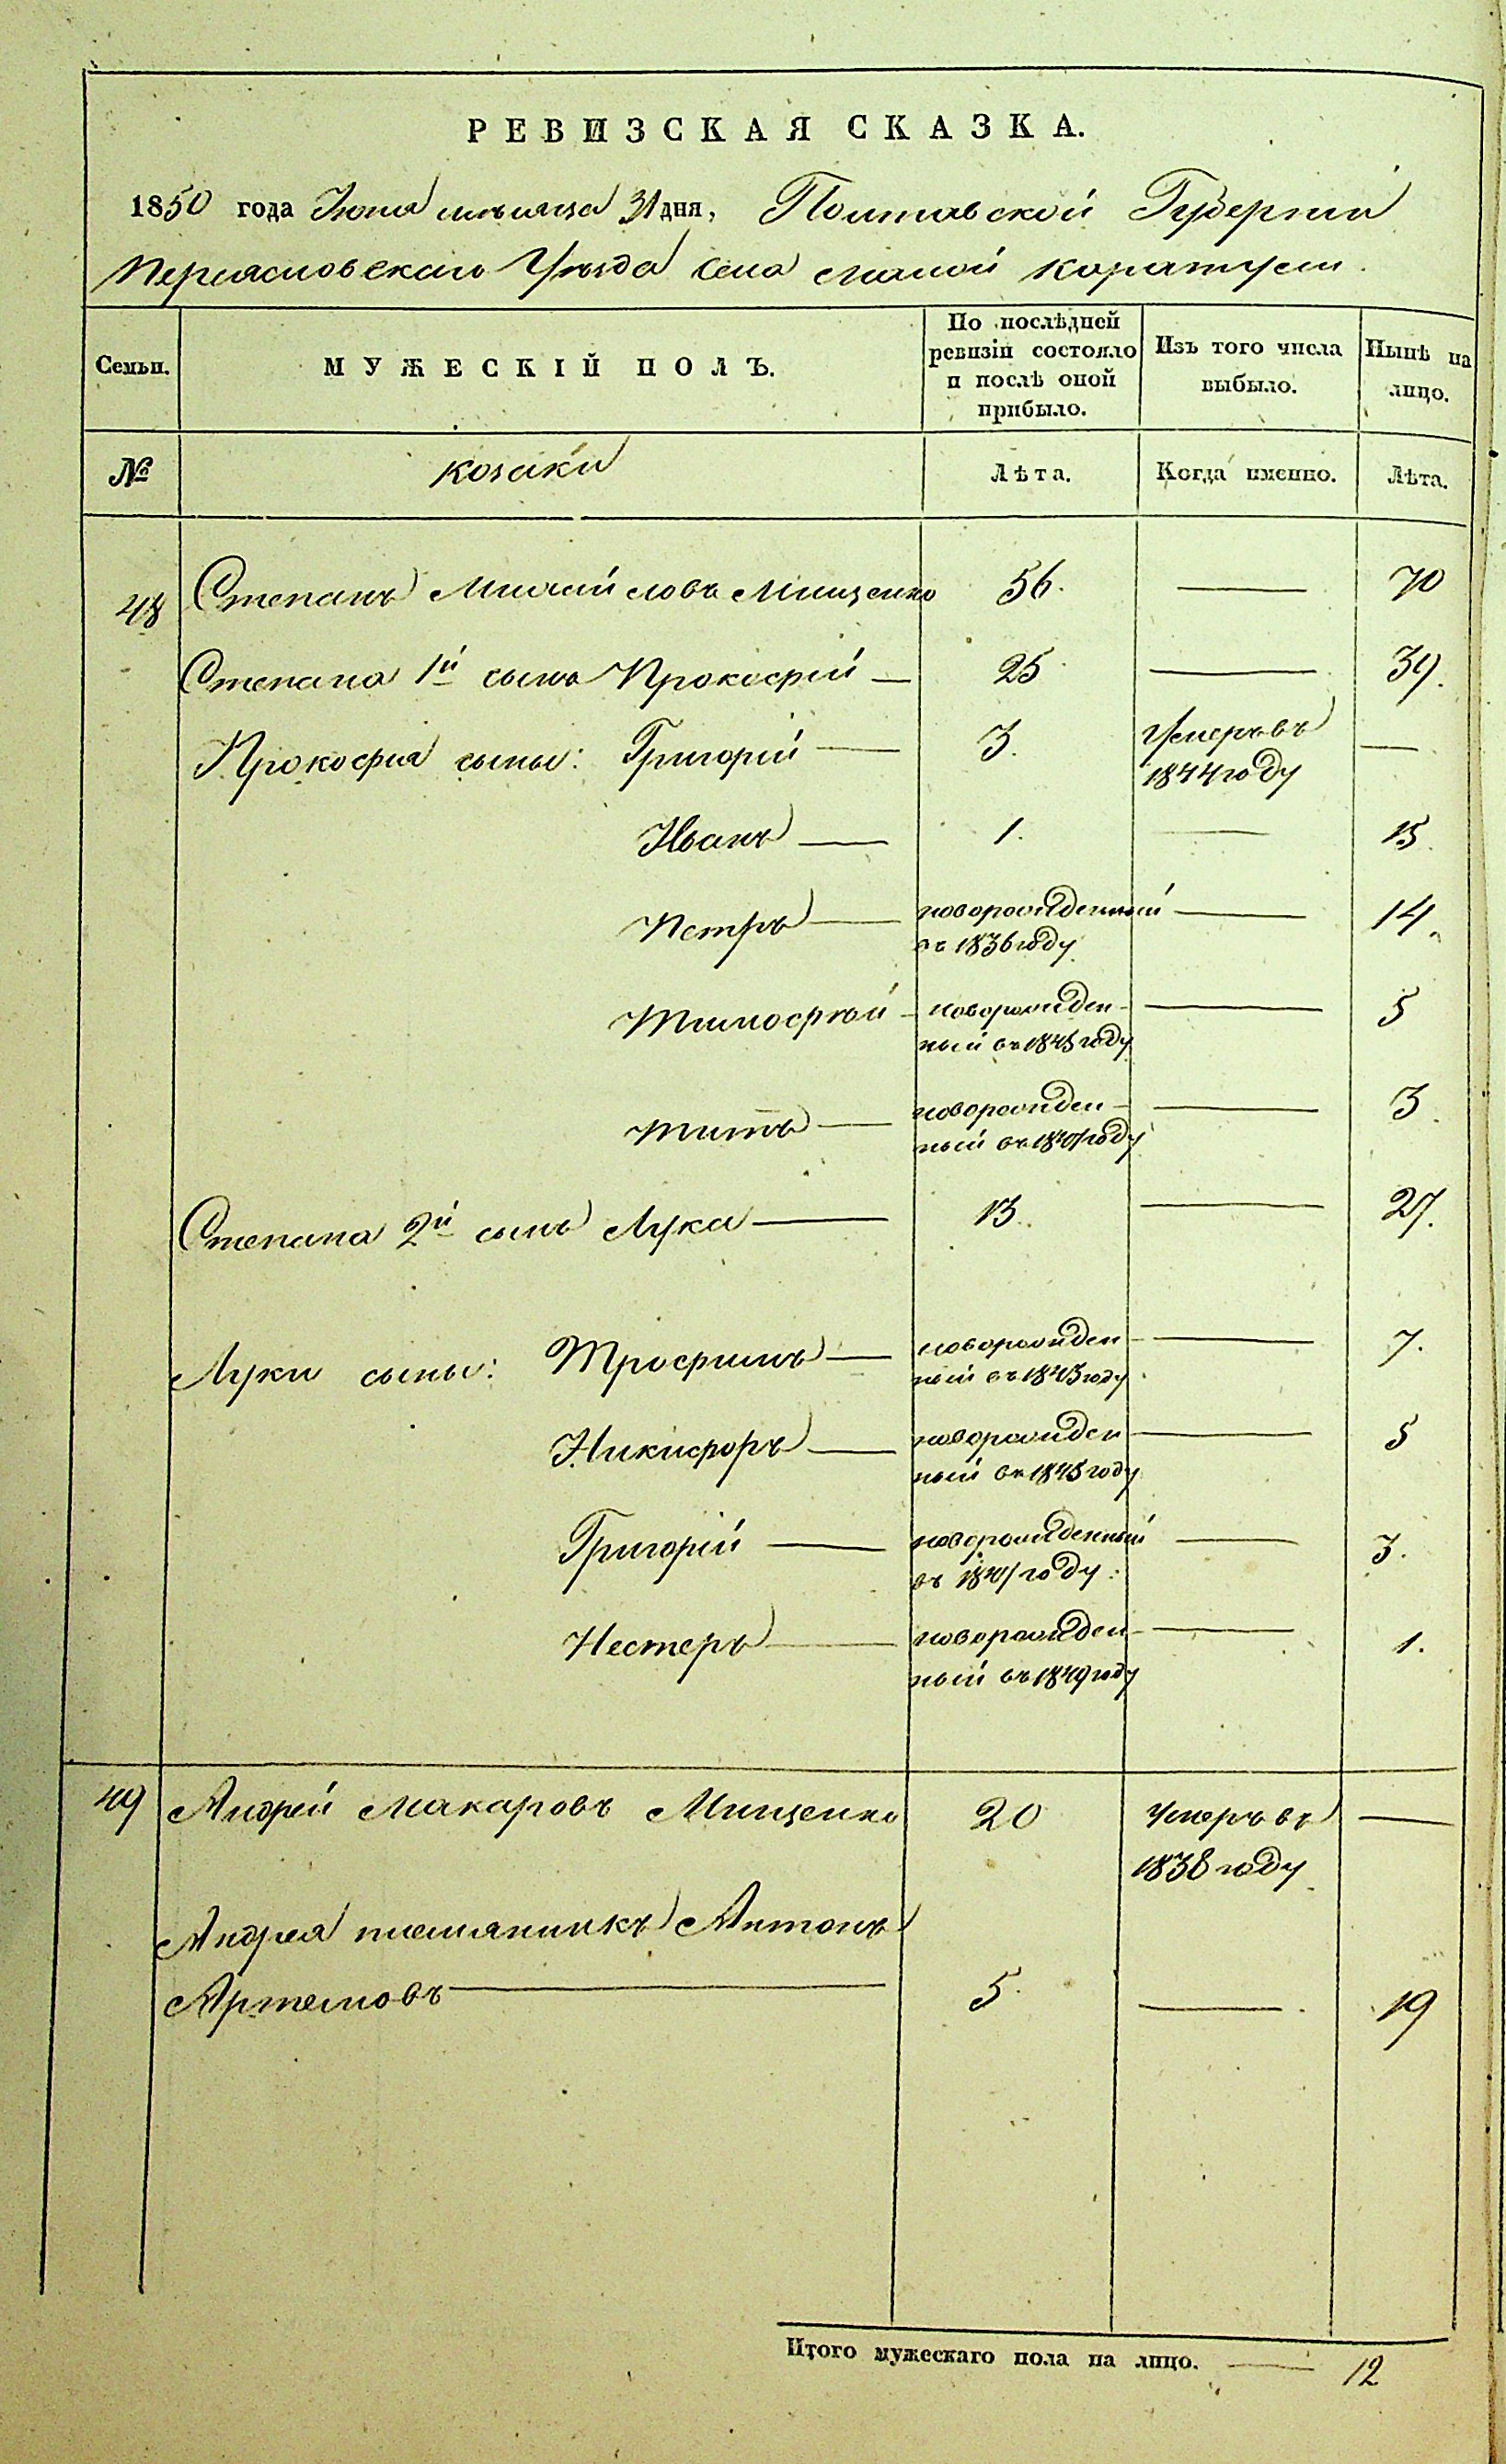 РЕВИЗСКАЯ СКАЗКА.
1850 года Июля мѣсяца 31 дня, Полтавской Губерніи
Переясловскаго Уѣзда Села малой Каратули.
Семьи.
МУЖЕСКІЙ ПОЛЪ.
По послѣдней
ревизіи состояло
и послѣ оной
прибыло.
Изъ того числа
выбыло.
Нынѣ на
лицо.
№
козаки
Лѣта.
Когда именно.
Лѣта.
48 Степанъ Михайловъ Мищенко 56. — 70
Степана 1й сынъ Прокофій — 25 — 39.
Прокофія сыны: Григорій — 3. Умеръ въ —
1844 году
Иванъ — 1. — 15.
Петръ — новорожденный — 14.
въ 1836 году
Тимофѣй — новорожден- — 5
ный въ 1845 году
Титъ — новорожден- — 3.
ный въ 1847 году
Степана 2й сынъ Лука — 13. — 27.
Луки сыны: Трофимъ — новорожден- — 7.
ный въ 1843 году
Никифоръ — новорожден — 5
ный въ 1845 году
Григорій — новорожденный — 3.
въ 1847 году.
Нестеръ — новорожден- — 1.
ный въ 1849 году
49 Андрей Макаровъ Мищенко 20 Умеръ въ —
1838 году
Андрея племянникъ Антонъ
Артемовъ — 5. — 19
Итого мужескаго пола на лицо. — 12